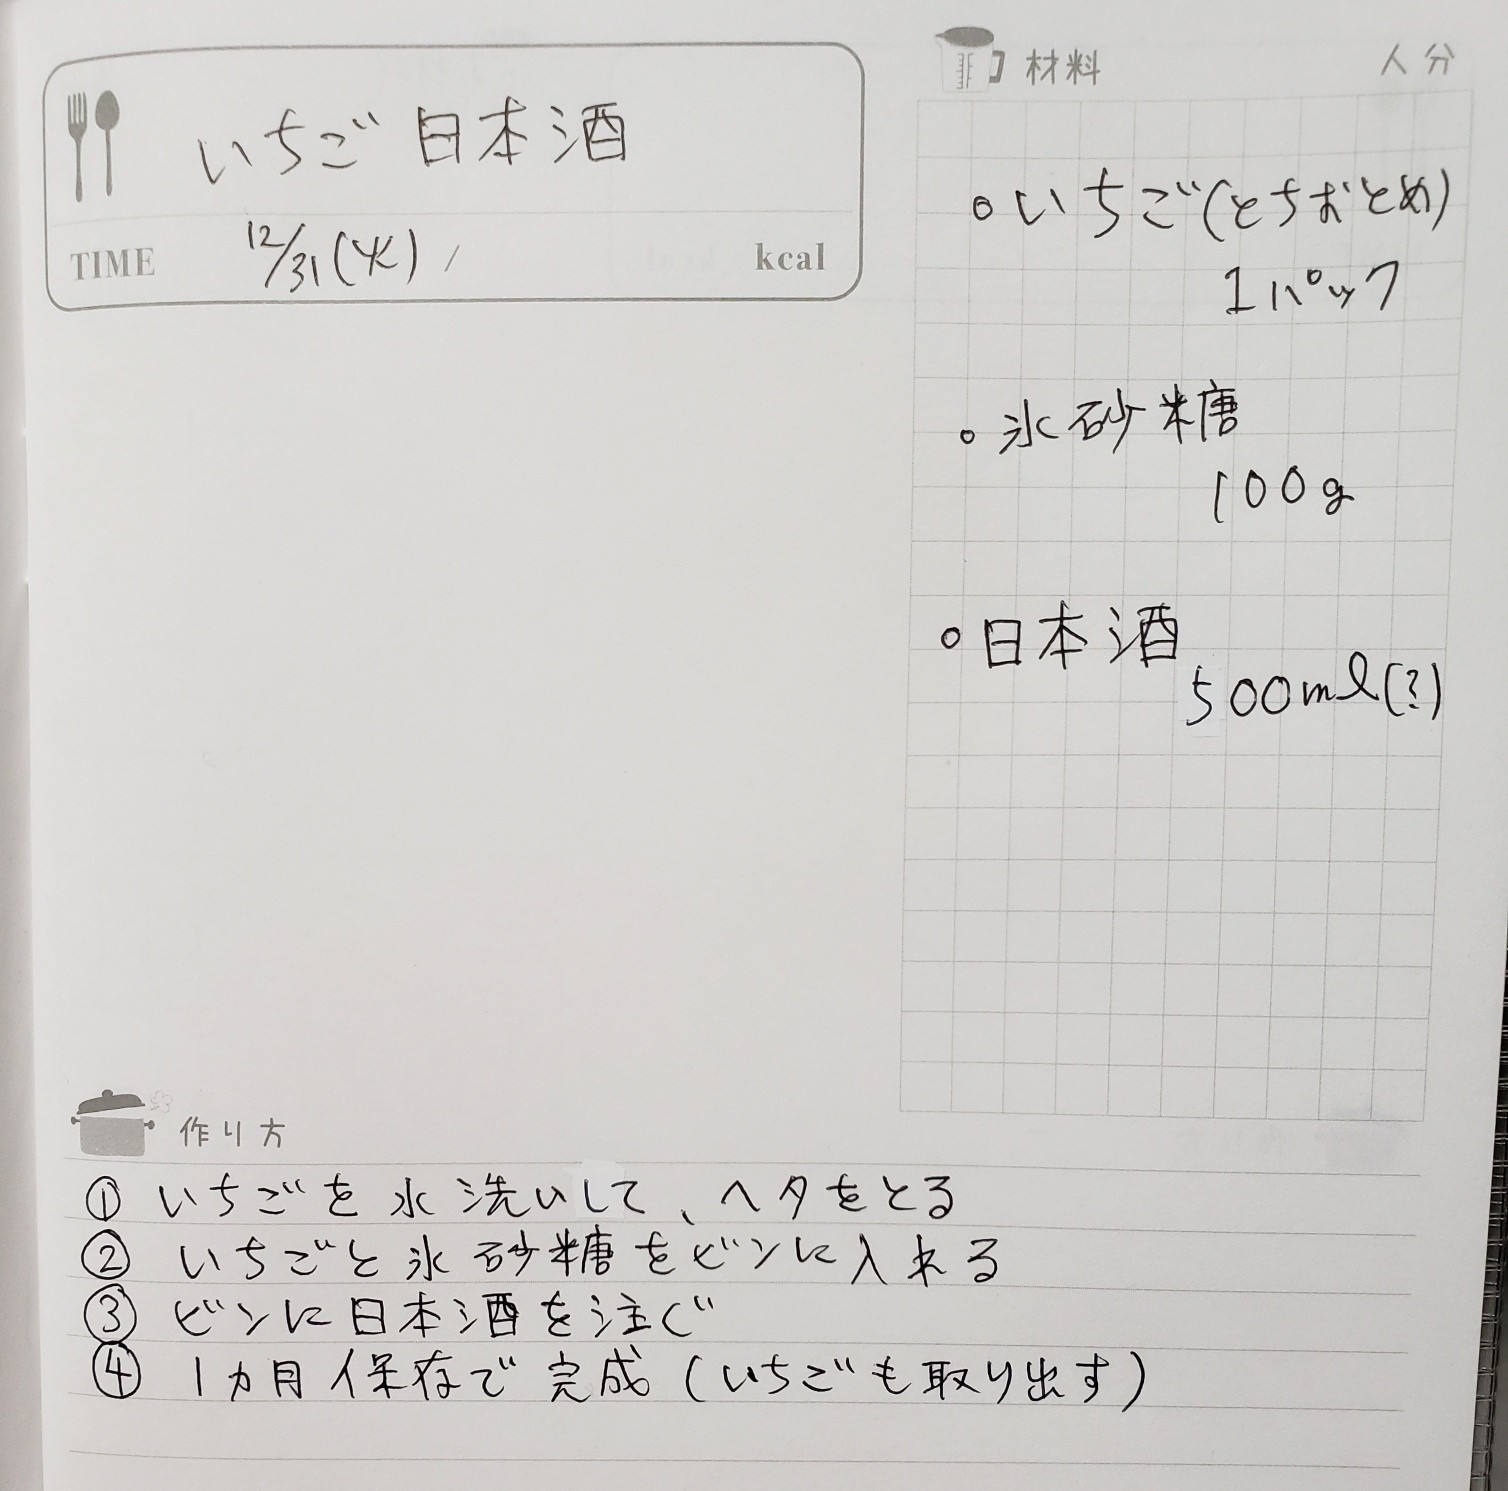 いちご日本酒
TIME 12/31(火) / kcal
材料 人分
○いちご(とちおとめ)
1パック
○氷砂糖
100g
○日本酒
500ml(?)
作り方
① いちごを水洗いして、ヘタをとる
② いちごと氷砂糖をビンに入れる
③ ビンに日本酒を注ぐ
④ 1カ月保存で完成(いちごも取り出す)